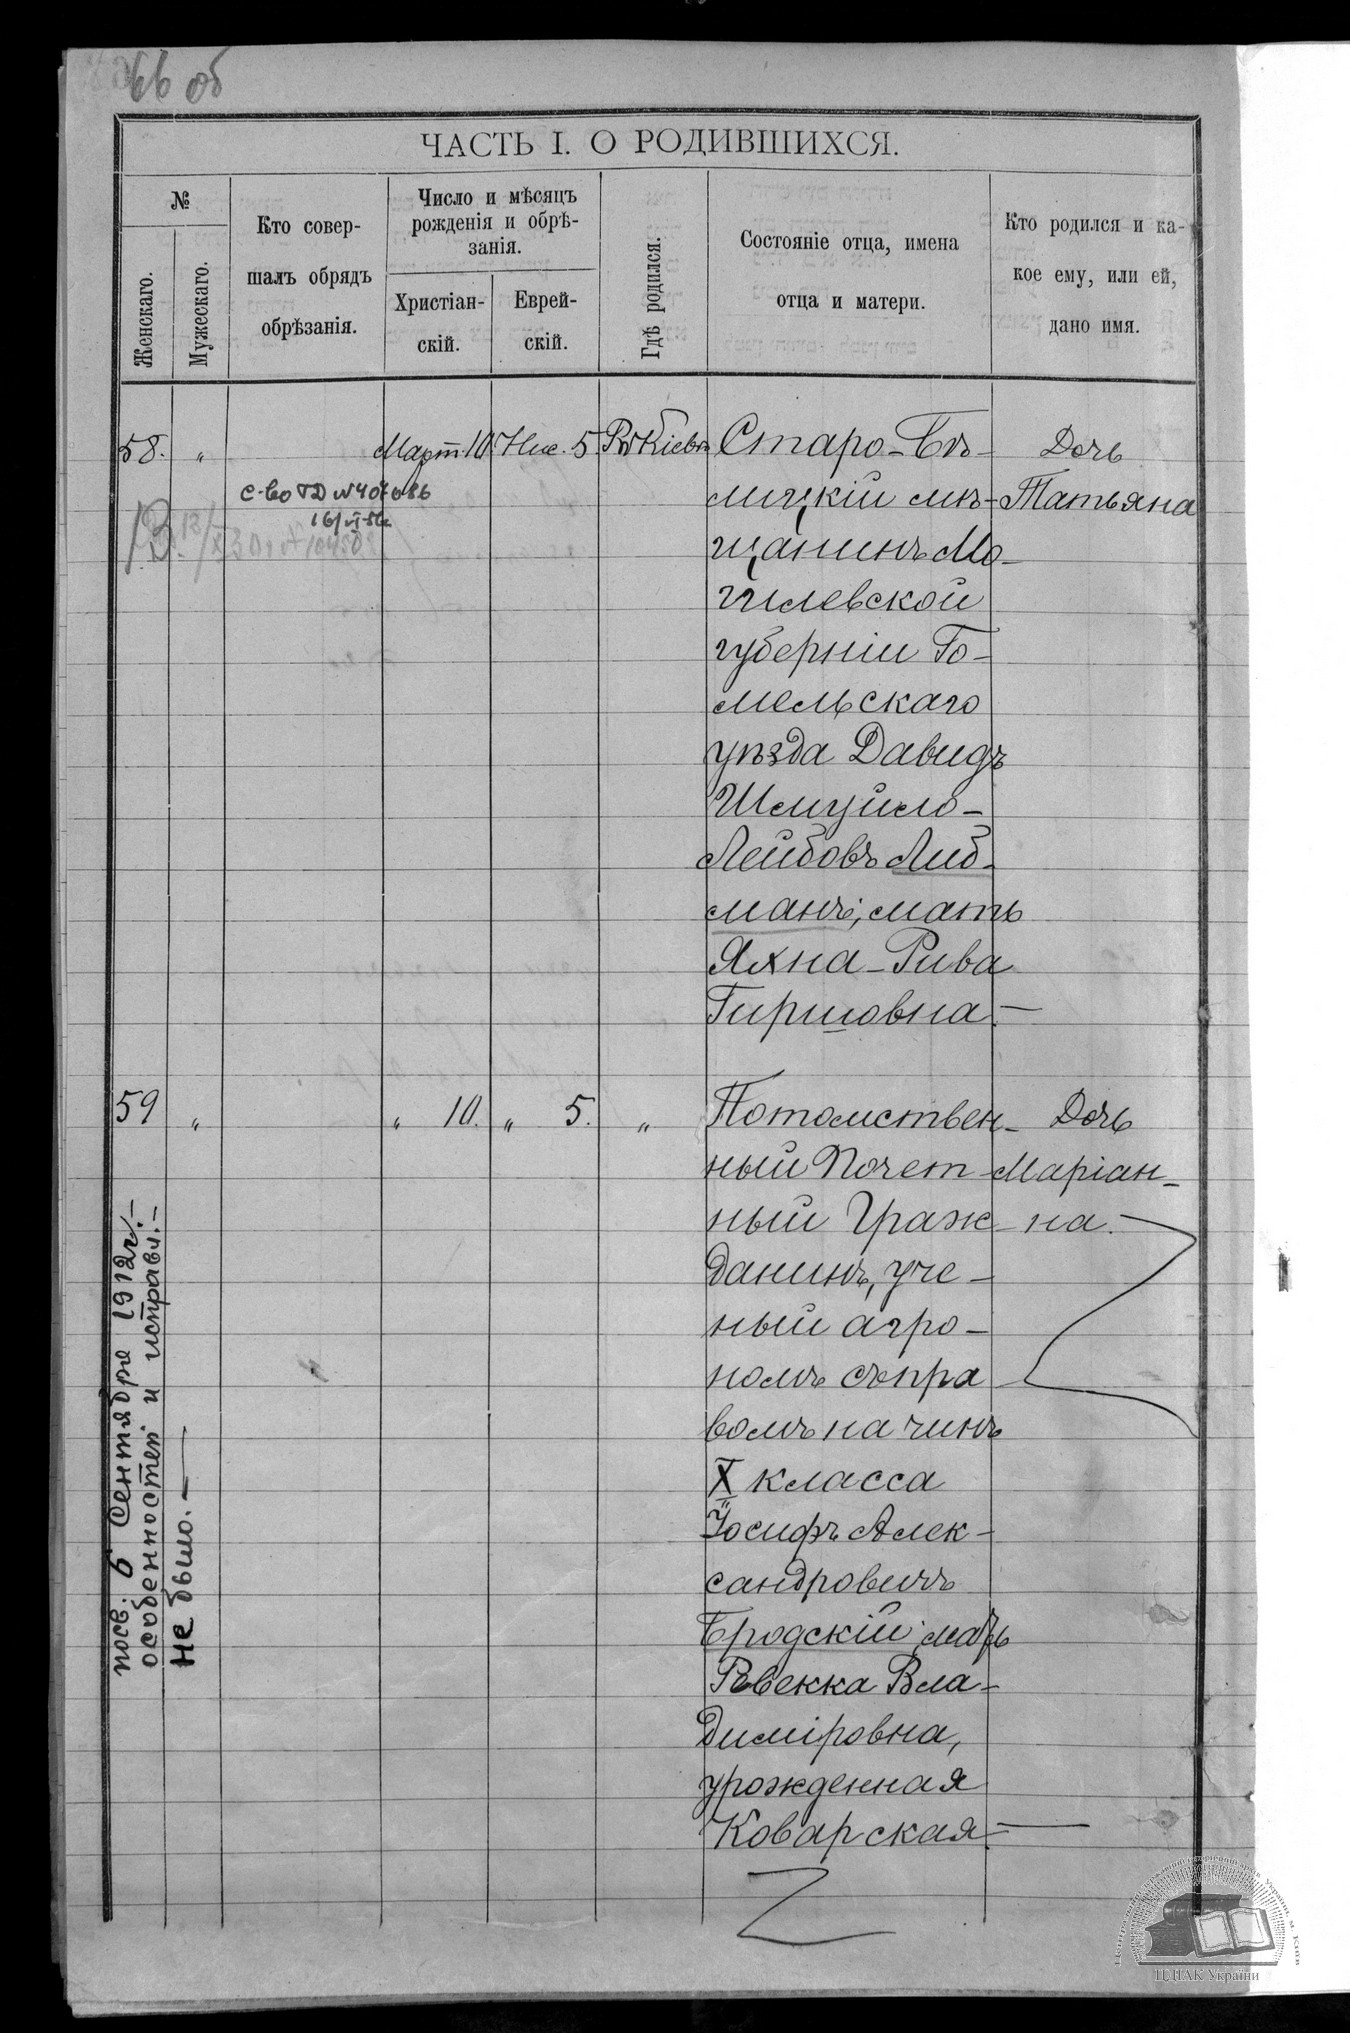 66 об
ЧАСТЬ I. О РОДИВШИХСЯ.
№
Женскаго.
Мужескаго.
Кто совер-
шалъ обрядъ
обрѣзанія.
Число и мѣсяцъ
рожденія и обрѣ-
занія.
Христіан-
скій.
Еврей-
скій.
Гдѣ родился.
Состояніе отца, имена
отца и матери.
Кто родился и ка-
кое ему, или ей,
дано имя.
58. „ Март. 10. Нис. 5. Въ Кіевѣ Старо-Бѣ- Дочь
лицкій мѣ- Татьяна
щанинъ Мо-
гилевской
губерніи Го-
мельскаго
уѣзда Давидъ
Шмуйло-
Лейбовъ Либ-
манъ; мать
Яхна-Рива
Гиршовна.—
с-во ТД № 407086
59 „ „ 10. „ 5. „ Потомствен- Дочь
ный Почет- Маріан-
ный Граж- на.—
данинъ, уче-
ный агро-
номъ съ пра
вомъ на чинъ
X класса
Іосифъ Алек-
сандровичъ
Бродскій, мать
Ревекка Вла-
диміровна,
урожденная
Коварская.—
посв. 6 Сентября 1912 г.—
особенностей и исправл.—
не было.—
ЦДІАК України